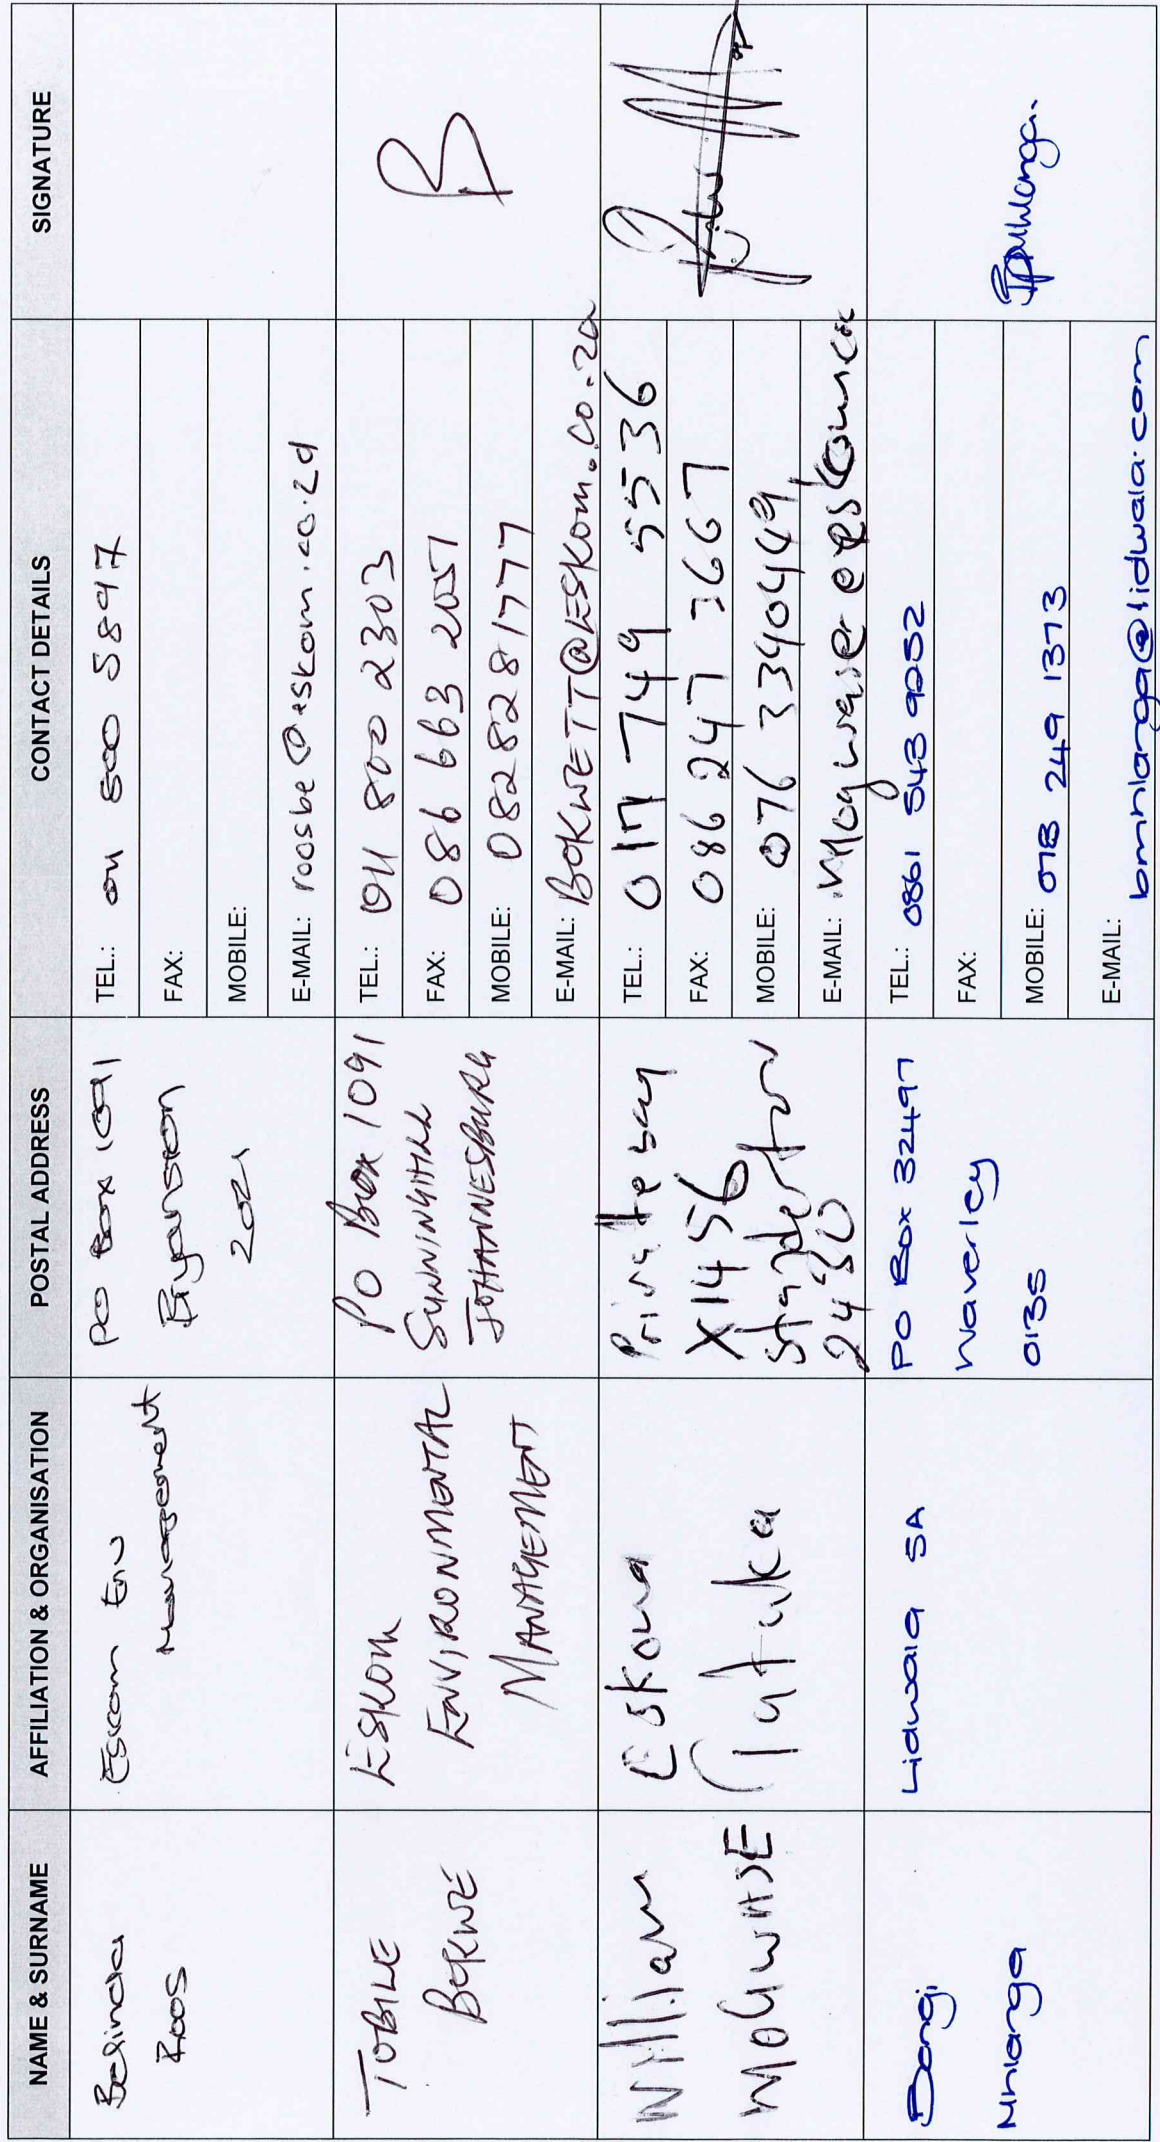 NAME & SURNAME
AFFILIATION & ORGANISATION
POSTAL ADDRESS
CONTACT DETAILS
SIGNATURE
Belinda
Roos
Eskom Env
Management
PO Box 1091
Bryanston
2021
TEL.: 011 800 5897
FAX:
MOBILE:
E-MAIL: roosbe@eskom.co.za
TOBILE
BOKWE
ESKOM
ENVIRONMENTAL
MANAGEMENT
PO Box 1091
SUNNINGHILL
JOHANNESBURG
TEL.: 011 800 2303
FAX: 086 663 2051
MOBILE: 0828281777
E-MAIL: BOKWETT@ESKOM.CO.ZA
William
MOGWASE
Eskom
Tutuka
Private bag
X1456
2430
TEL.: 017 749 5536
FAX: 086 247 3667
MOBILE: 076 3340449
E-MAIL:
Bongi
Mhlanga
Lidwala SA
PO Box 32497
Waverley
0135
TEL.: 0861 543 9252
FAX:
MOBILE: 078 249 1373
E-MAIL:
bmhlanga@lidwala.com